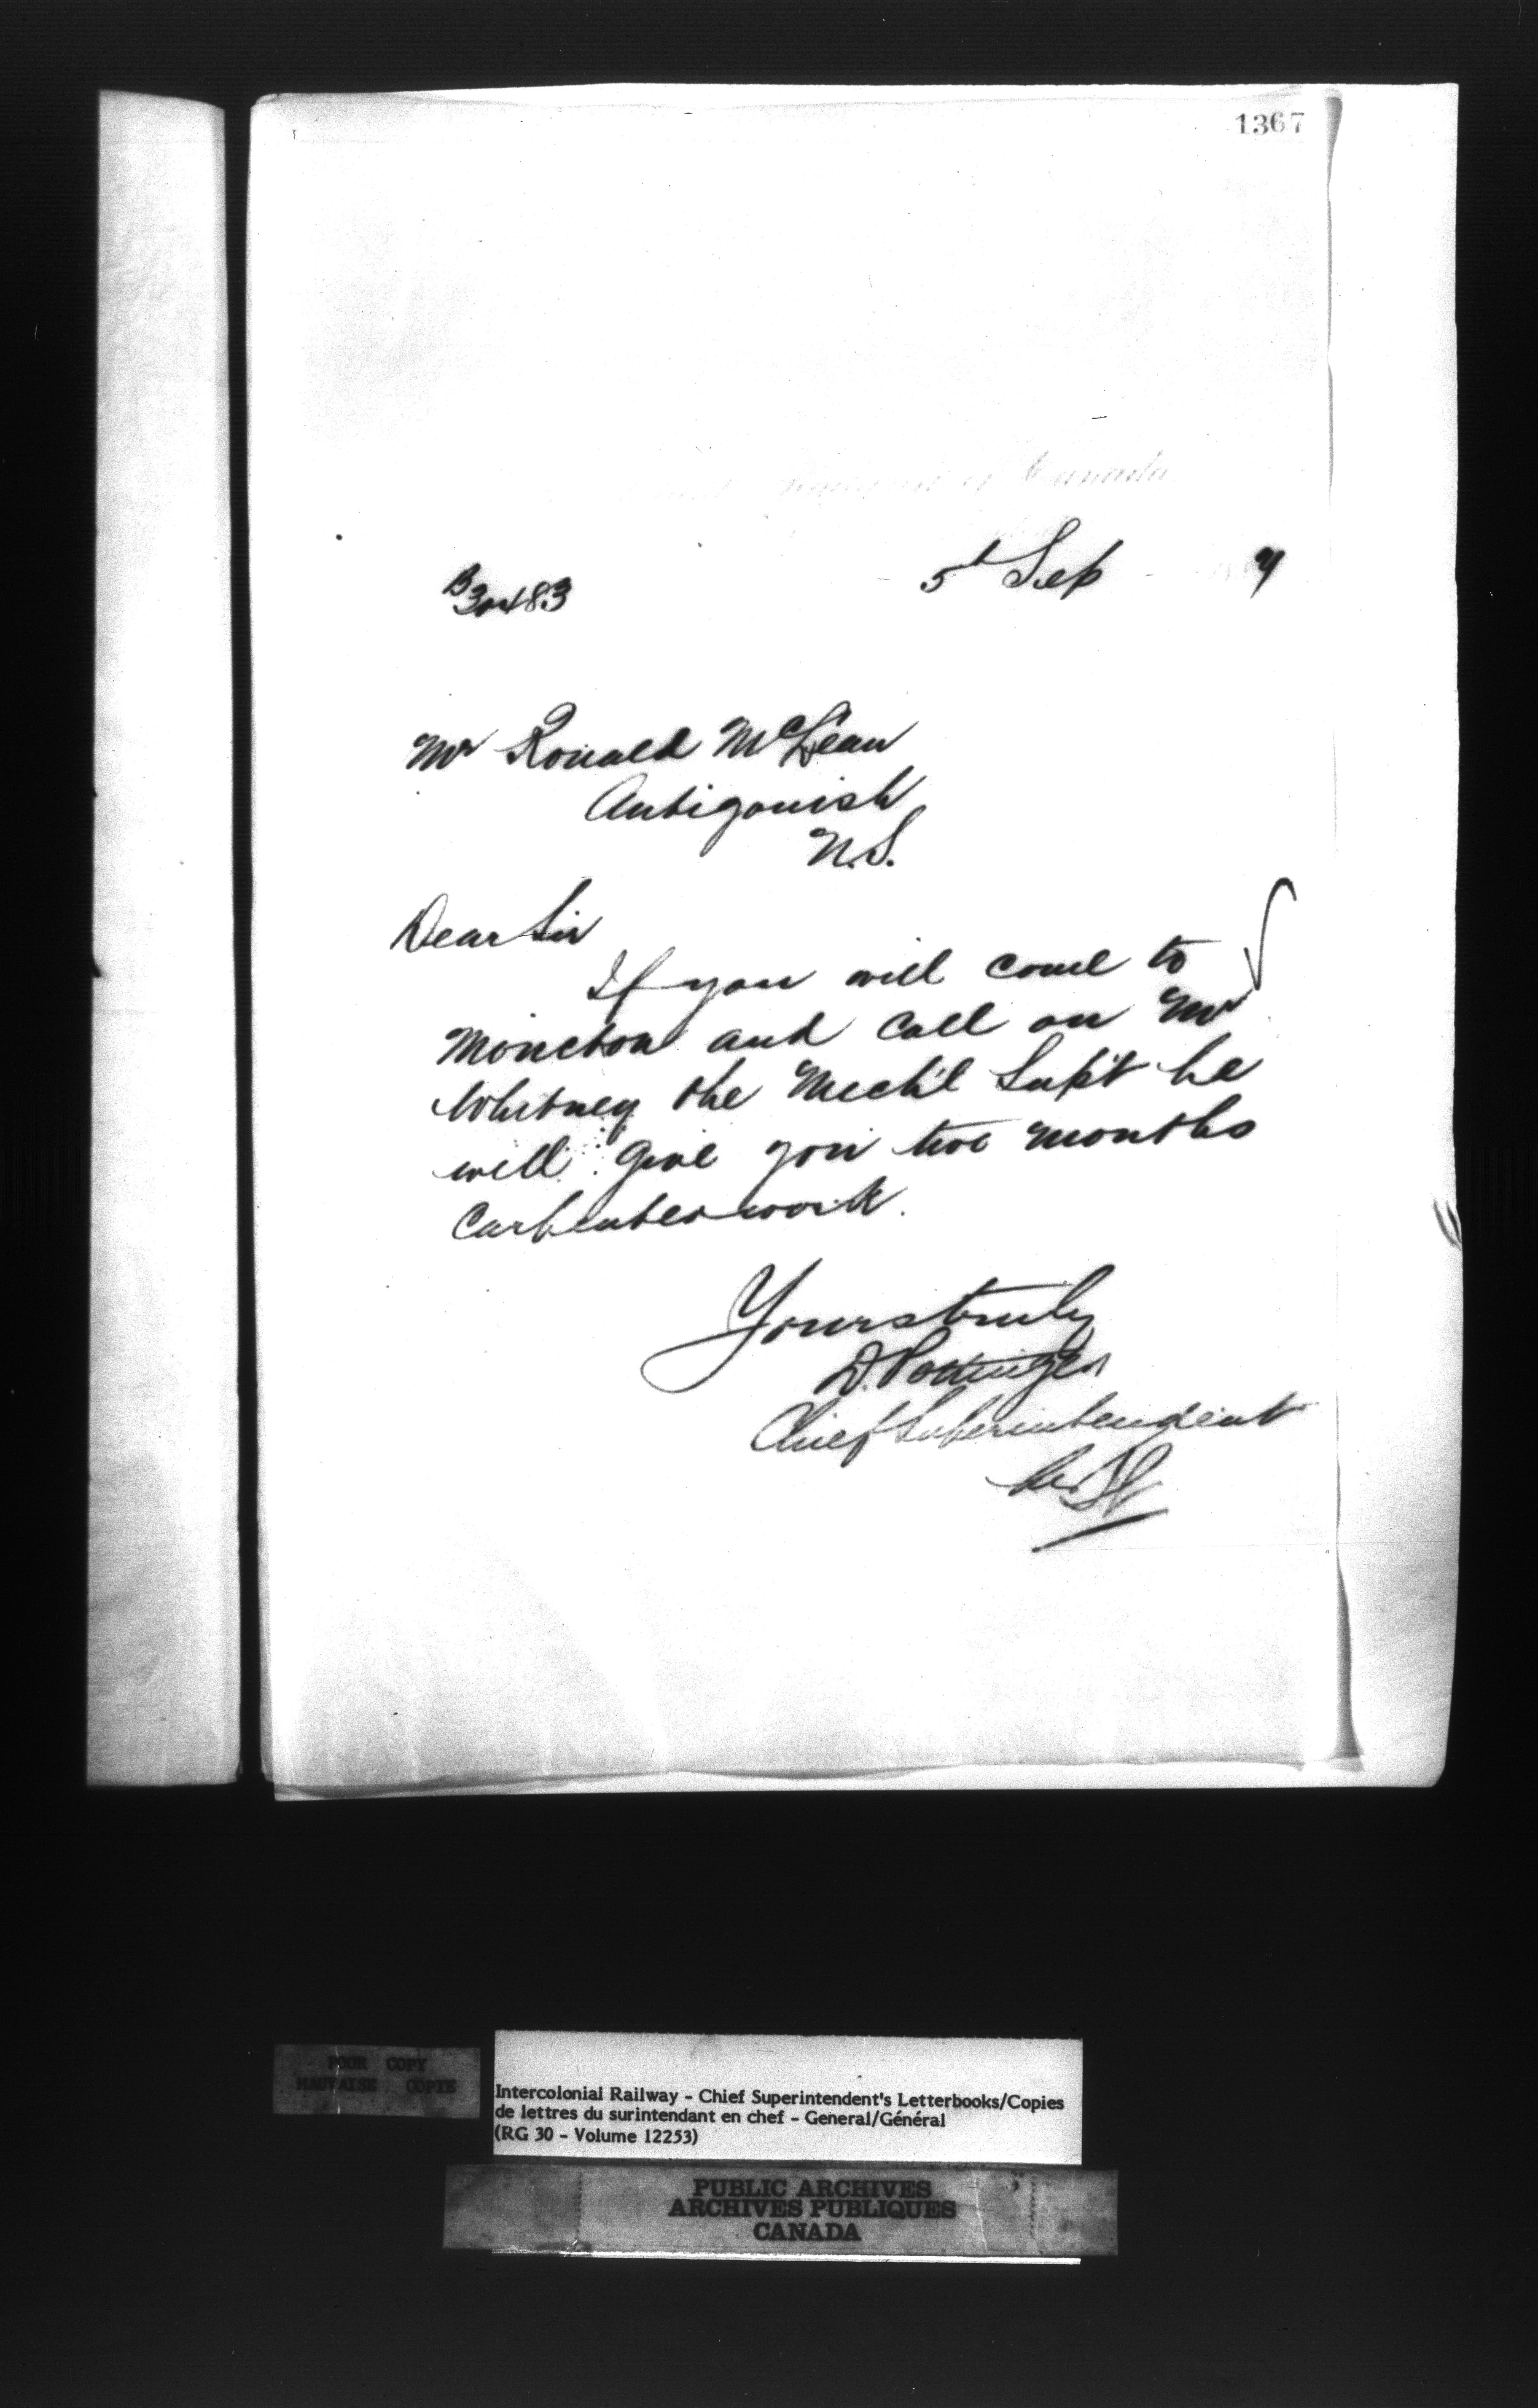 1367
of Canada
B30483
5th Sep 7
Mr Ronald McLean
Antigonish
N.S.
Dear Sir
If you will come to
Moncton and call on Mr
Whitney the Mech'l Sup't he
will give you two months
Carpenter work.
Yours truly
D. Pottinger
Chief Superintendent
POOR COPY
MAUVAISE COPIE
Intercolonial Railway - Chief Superintendent's Letterbooks/Copies
de lettres du surintendant en chef - General/Général
(RG 30 - Volume 12253)
PUBLIC ARCHIVES
ARCHIVES PUBLIQUES
CANADA